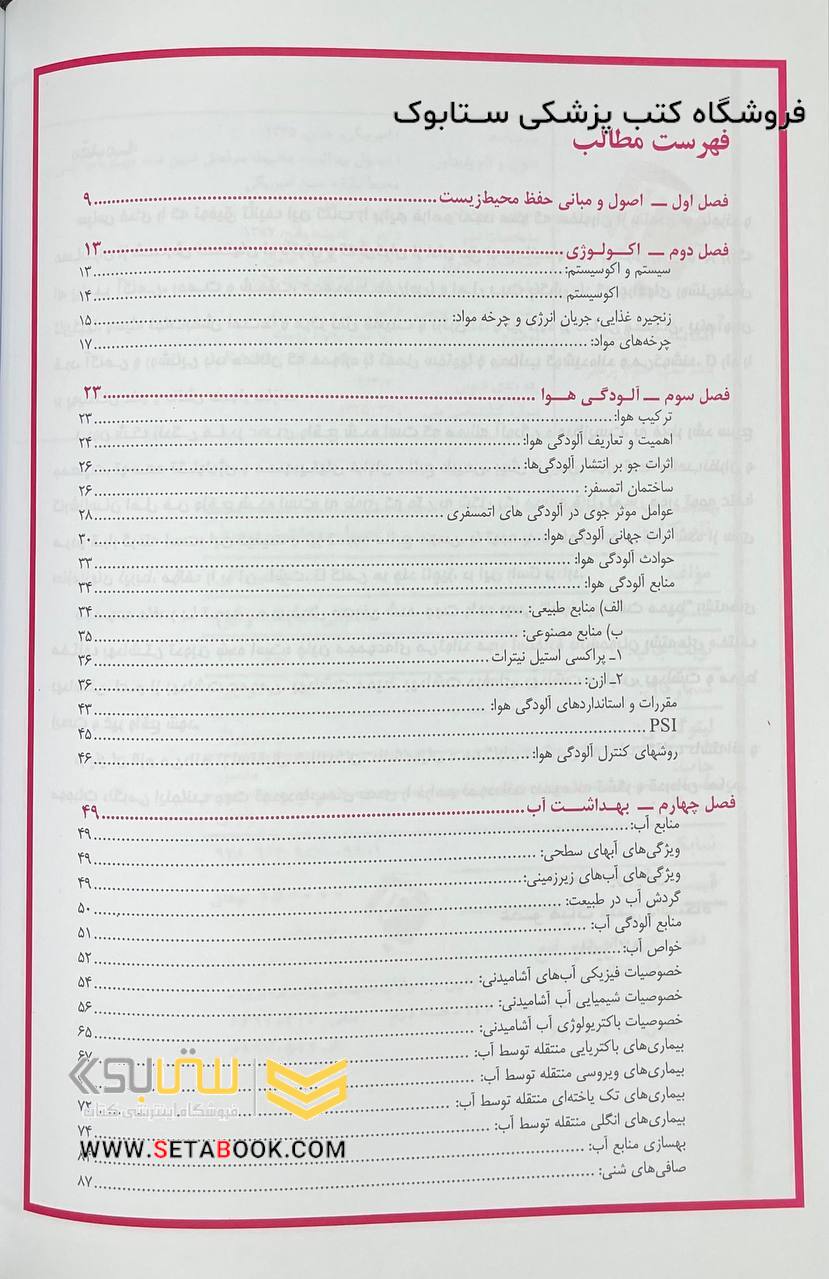 فروشگاه کتب پزشکی ستابوک
فهرست مطالب
فصل اول ــ اصول و مبانی حفظ محیط‌زیست........................................۹
فصل دوم ــ اکـولـوژی........................................۱۳
سیستم و اکوسیستم:........................................۱۳
اکوسیستم........................................۱۴
زنجیره غذایی، جریان انرژی و چرخه مواد:........................................۱۵
چرخه‌های مواد:........................................۱۷
فصل سوم ــ آلـودگـی هـوا........................................۲۳
ترکیب هوا:........................................۲۳
اهمیت و تعاریف آلودگی هوا:........................................۲۴
اثرات جو بر انتشار آلودگی‌ها:........................................۲۶
ساختمان اتمسفر:........................................۲۶
عوامل موثر جوی در آلودگی های اتمسفری........................................۲۸
اثرات جهانی آلودگی هوا:........................................۳۰
حوادث آلودگی هوا:........................................۳۳
منابع آلودگی هوا:........................................۳۴
الف) منابع طبیعی:........................................۳۴
ب) منابع مصنوعی:........................................۳۵
۱ـ پراکسی استیل نیترات........................................۳۶
۲ـ ازن:........................................۳۶
مقررات و استانداردهای آلودگی هوا:........................................۴۳
PSI........................................۴۵
روشهای کنترل آلودگی هوا:........................................۴۶
فصل چهارم ــ بهـداشــت آب........................................۴۹
منابع آب:........................................۴۹
ویژگی‌های آبهای سطحی:........................................۴۹
ویژگی‌های آب‌های زیرزمینی:........................................۴۹
گردش آب در طبیعت:........................................۵۰
منابع آلودگی آب:........................................۵۱
خواص آب:........................................۵۲
خصوصیات فیزیکی آب‌های آشامیدنی:........................................۵۴
خصوصیات شیمیایی آب آشامیدنی:........................................۵۶
خصوصیات باکتریولوژی آب آشامیدنی:........................................۶۵
بیماری‌های باکتریایی منتقله توسط آب:........................................۶۷
بیماری‌های ویروسی منتقله توسط آب:........................................
بیماری‌های تک یاخته‌ای منتقله توسط آب:........................................۷۲
بیماری‌های انگلی منتقله توسط آب:........................................۷۴
بهسازی منابع آب:........................................
صافی‌های شنی:........................................۸۷
ستابوک
فروشگاه اینترنتی کتاب
WWW.SETABOOK.COM